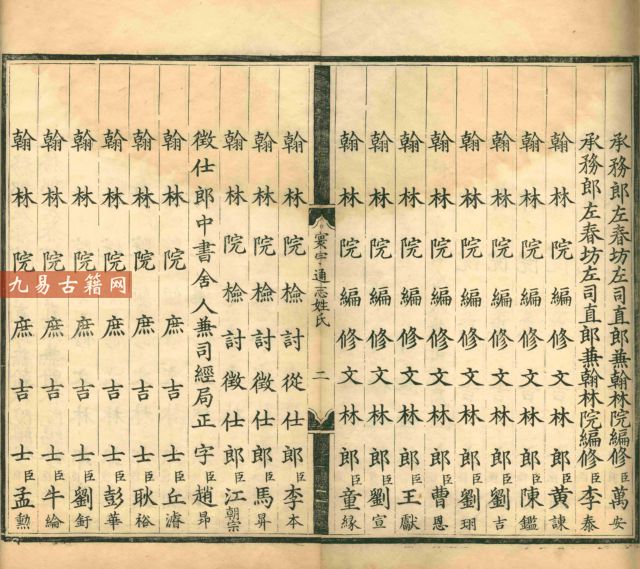 承務郎左春坊左司直郎兼翰林院編修臣萬安
承務郎左春坊左司直郎兼翰林院編修臣李泰
翰林院編修文林郎臣黃諫
翰林院編修文林郎臣陳鑑
翰林院編修文林郎臣劉吉
翰林院編修文林郎臣劉珝
翰林院編修文林郎臣曹恩
翰林院編修文林郎臣王獻
翰林院編修文林郎臣劉宣
翰林院編修文林郎臣童緣
寰宇通志姓氏 二
翰林院檢討從仕郎臣李本
翰林院檢討徵仕郎臣馬昇
翰林院檢討徵仕郎臣江朝宗
徵仕郎中書舍人兼司經局正字臣趙昂
翰林院庶吉士臣丘濬
翰林院庶吉士臣耿裕
翰林院庶吉士臣彭華
翰林院庶吉士臣劉釪
翰林院庶吉士臣牛綸
翰林院庶吉士臣孟勲
九易古籍网